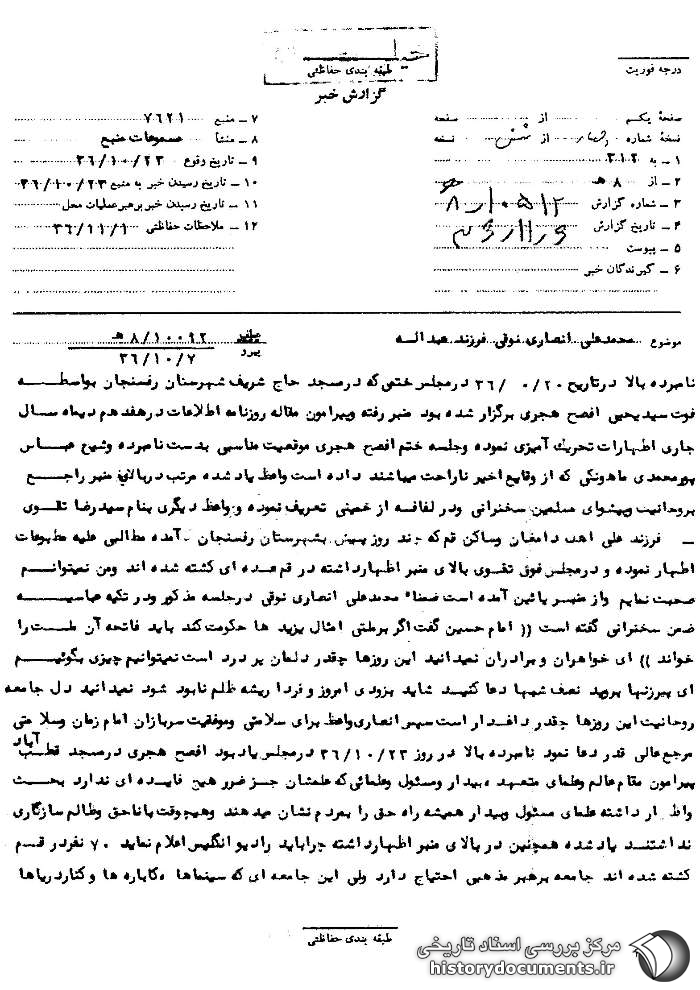 خیلی
طبقه بندی حفاظتی
گزارش خبر
درجه فوریت
صفحهٔ یکم از صفحه
نسخهٔ شماره چهار از شش نسخه
۱ ـ به ۳۱۲
۲ ـ از ۸ هـ
۳ ـ شماره گزارش
۴ ـ تاریخ گزارش
۵ ـ پیوست
۶ ـ گیرندگان خبر
۷ ـ منبع ۷۶۲۱
۸ ـ منشأ مسموعات منبع
۹ ـ تاریخ وقوع ۳۶/۱۰/۲۳
۱۰ ـ تاریخ رسیدن خبر به منبع ۳۶/۱۰/۲۳
۱۱ ـ تاریخ رسیدن خبر برهبرعملیات محل
۱۲ ـ ملاحظات حفاظتی ۳۶/۱۱/۱
موضوع محمدعلی انصاری نوقی فرزند عبداله
عطف
پیرو
۸/۱۰۰۹۲ هـ
۳۶/۱۰/۷
نامبرده بالا درتاریخ ۳۶/ ۰/۲۰ درمجلس ختمی که درمسجد حاج شریف شهرستان رفسنجان بواسطه
فوت سیدیحیی افصح هجری برگزار شده بود منبر رفته وپیرامون مقاله روزنامه اطلاعات درهفدهم دیماه سال
جاری اظهارات تحریک آمیزی نموده وجلسه ختم افصح هجری موقعیت مناسبی بدست نامبرده وشیخ عباس
پورمحمدی ماهونکی که از وقایع اخیر ناراحت میباشند داده است واعظ یاد شده مرتب دربالای منبر راجع
بروحانیت وپیشوای مسلمین سخنرانی ودر لفافه از خمینی تعریف نموده و واعظ دیگری بنام سیدرضا تقوی
ـ فرزند علی اهل دامغان وساکن قم که چند روز پیش بشهرستان رفسنجان آمده مطالبی علیه مطبوعات
اظهار نموده و درمجلس فوق تقوی بالای منبر اظهارداشته در قم عده ای کشته شده اند ومن نمیتوانم
صحبت نمایم واز منبر پائین آمده است ضمناً محمدعلی انصاری نوقی درجلسه مذکور ودر تکیه عباسیه
ضمن سخنرانی گفته است (( امام حسین گفت اگر برملتی امثال یزید ها حکومت کند باید فاتحه آن ملت را
خواند )) ای خواهران و برادران نمیدانید این روزها چقدر دلمان پر درد است نمیتوانیم چیزی بگوئیم
ای پیرزنها بروید نصف شبها دعا کنید شاید بزودی امروز و فردا ریشه ظلم نابود شود نمیدانید دل جامعه
روحانیت این روزها چقدر داغدار است سپس انصاری واعظ برای سلامتی وموفقیت سربازان امام زمان وسلامتی
مرجع عالی قدر دعا نمود نامبرده بالا در روز ۳۶/۱۰/۲۳ درمجلس یادبود افصح هجری درمسجد قطب آباد
پیرامون مقام عالم وعلمای متعهد ، بیدار ومسئول وعلمائی که علمشان جز ضرر هیچ فایده ای ندارد بحث
واظ ار داشته علمای مسئول وبیدار همیشه راه حق را بمردم نشان میدهند وهیچوقت باناحق وظالم سازگاری
نداشتند یاد شده همچنین در بالای منبر اظهارداشته چراباید رادیو انگلیس اعلام نماید ۷۰ نفردر قم
کشته شده اند جامعه برهبر مذهبی احتیاج دارد ولی این جامعه ای که سینماها ،کاباره ها وکناردریاها
طبقه بندی حفاظتی
مرکز بررسی اسناد تاریخی
historydocuments.ir